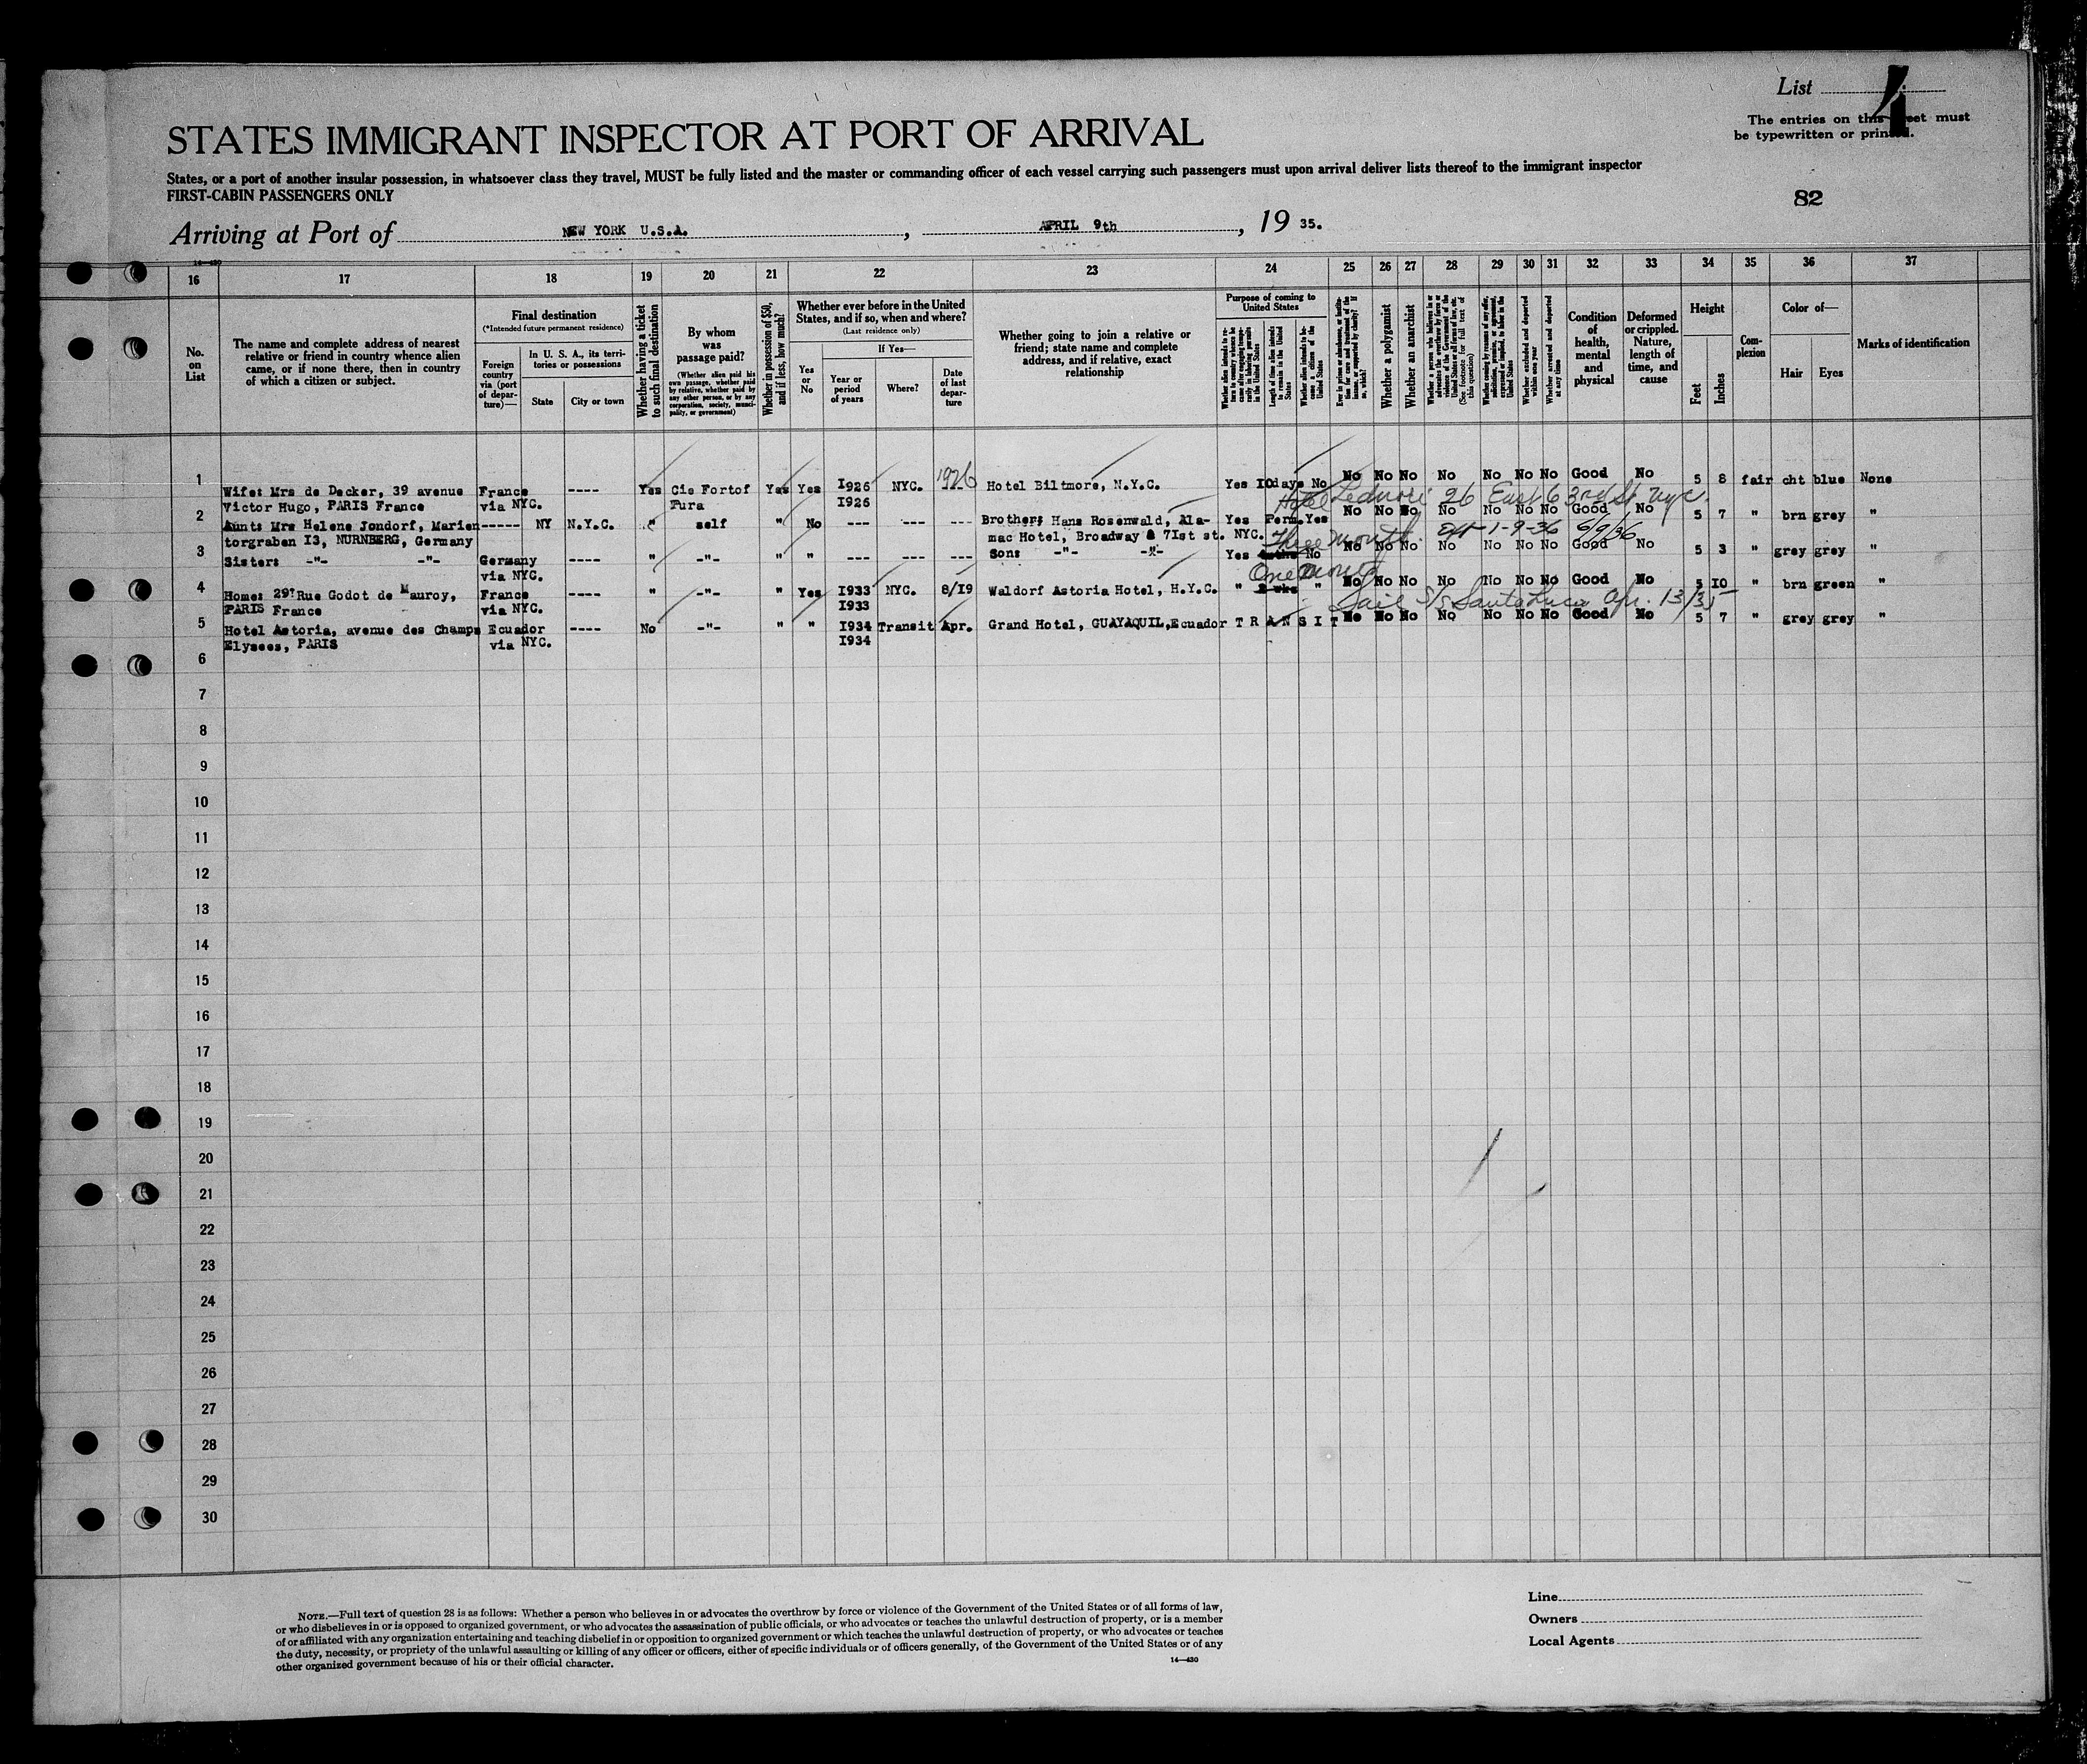 List 4
The entries on this sheet must
be typewritten or printed.
STATES IMMIGRANT INSPECTOR AT PORT OF ARRIVAL
States, or a port of another insular possession, in whatsoever class they travel, MUST be fully listed and the master or commanding officer of each vessel carrying such passengers must upon arrival deliver lists thereof to the immigrant inspector
FIRST-CABIN PASSENGERS ONLY
82
Arriving at Port of NEW YORK U.S.A. , APRIL 9th , 19 35.
14-430
16 17 18 19 20 21 22 23 24 25 26 27 28 29 30 31 32 33 34 35 36 37
No. on List
The name and complete address of nearest relative or friend in country whence alien came, or if none there, then in country of which a citizen or subject.
Final destination
(*Intended future permanent residence)
Foreign country via (port of departure)—
In U. S. A., its territories or possessions
State
City or town
Whether having a ticket to such final destination
By whom was passage paid?
(Whether alien paid his own passage, whether paid by relative, whether paid by any other person, or by any corporation, society, municipality, or government)
Whether in possession of $50, and if less, how much?
Whether ever before in the United States, and if so, when and where?
(Last residence only)
Yes or No
If Yes—
Year or period of years
Where?
Date of last departure
Whether going to join a relative or friend; state name and complete address, and if relative, exact relationship
Purpose of coming to United States
Whether alien intends to return to country whence he came after engaging temporarily in laboring pursuits in the United States
Length of time alien intends to remain in the United States
Whether alien intends to become a citizen of the United States
Whether a polygamist
Whether an anarchist
Whether excluded and deported within one year
Whether arrested and deported at any time
Condition of health, mental and physical
Deformed or crippled. Nature, length of time, and cause
Height
Feet
Inches
Complexion
Color of—
Hair
Eyes
Marks of identification
1 Wife: Mrs de Decker, 39 avenue France ---- Yes Cie Fortof Yes Yes I926 NYC. 1926 Hotel Biltmore, N.Y.C. Yes IOdays No No No No No No No No Good No 5 8 fair cht blue None
Victor Hugo, PARIS France via NYC. Fura I926
Hotel 26 East 63rd St. nyc.
2 Aunt: Mrs Helene Jondorf, Marien ----- NY N.Y.C. " self " No --- --- --- Brother: Hans Rosenwald, Ala- Yes Perm. Yes No No No No No No No Good No 5 7 " brn grey "
torgraben I3, NURNBERG, Germany mac Hotel, Broadway & 7Ist st. NYC.
Three months. 1-9-36 6/9/36
3 Sister: -"- -"- Germany ---- " -"- " " --- --- --- Son: -"- -"- Yes No No No No No No No No Good No 5 3 " grey grey "
via NYC.
One month
4 Home: 29? Rue Godot de Mauroy, France ---- " -"- " Yes I933 NYC. 8/I9 Waldorf Astoria Hotel, H.Y.C. " 2 wks " No No No No No No No Good No 5 IO " brn green "
PARIS France via NYC. I933
Sail S/s Santa Apr. 13/35
5 Hotel Astoria, avenue des Champs Ecuador ---- No -"- " " I934 Transit Apr. Grand Hotel, GUAYAQUIL,Ecuador T R A N S I T No No No No No No No Good No 5 7 " grey grey "
Elysees, PARIS via NYC. I934
6
7
8
9
10
11
12
13
14
15
16
17
18
19
20
21
22
23
24
25
26
27
28
29
30
NOTE.—Full text of question 28 is as follows: Whether a person who believes in or advocates the overthrow by force or violence of the Government of the United States or of all forms of law,
or who disbelieves in or is opposed to organized government, or who advocates the assassination of public officials, or who advocates or teaches the unlawful destruction of property, or is a member
of or affiliated with any organization entertaining and teaching disbelief in or opposition to organized government or which teaches the unlawful destruction of property, or who advocates or teaches
the duty, necessity, or propriety of the unlawful assaulting or killing of any officer or officers, either of specific individuals or of officers generally, of the Government of the United States or of any
other organized government because of his or their official character.
14—430
Line
Owners
Local Agents